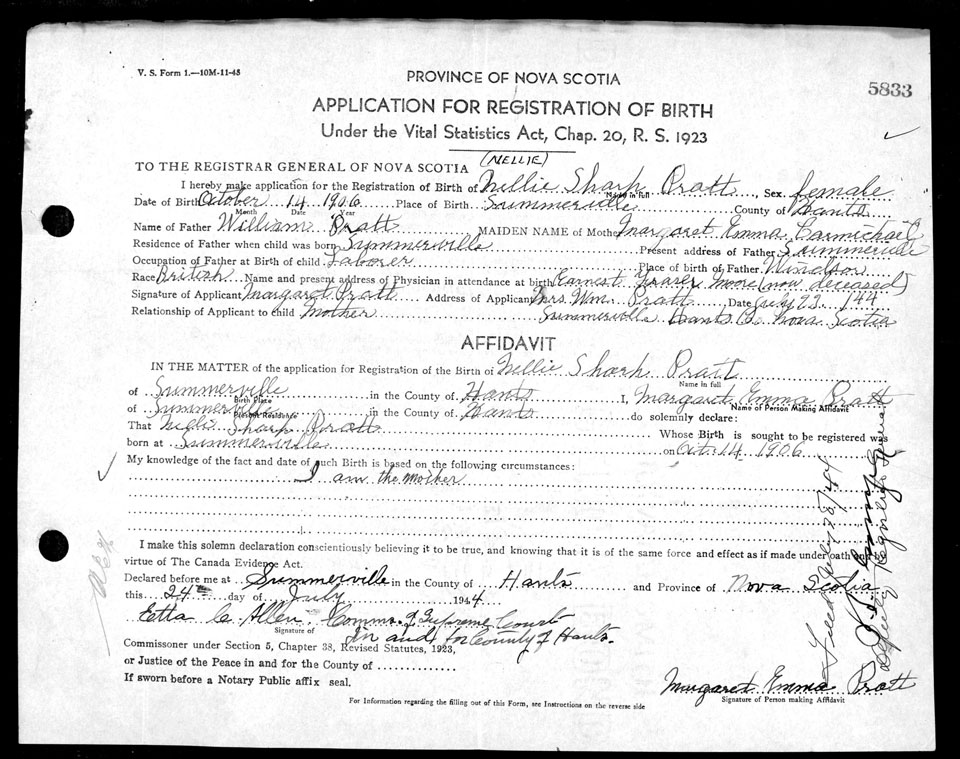 V. S. Form 1.—10M-11-43
PROVINCE OF NOVA SCOTIA
5833
APPLICATION FOR REGISTRATION OF BIRTH
Under the Vital Statistics Act, Chap. 20, R. S. 1923
(NELLIE)
TO THE REGISTRAR GENERAL OF NOVA SCOTIA
I hereby make application for the Registration of Birth of Nellie Sharp Pratt, Sex female
Name in full
Date of Birth October 14 1906 Place of Birth Summerville County of Hants
Month Date Year
Name of Father William Pratt MAIDEN NAME of Mother Margaret Emma Carmichael
Residence of Father when child was born Summerville Present address of Father Summerville
Occupation of Father at Birth of child Laborer Place of Birth of Father Windsor
Race British Name and present address of Physician in attendance at birth Earnest Fraser Moore (now deceased)
Signature of Applicant Margaret Pratt Address of Applicant Mrs. Wm. Pratt Date July 23 /44
Relationship of Applicant to child Mother Summerville Hants Co. Nova Scotia
AFFIDAVIT
IN THE MATTER of the application for Registration of the Birth of Nellie Sharp Pratt
Name in full
of Summerville in the County of Hants I, Margaret Emma Pratt
Birth Place Name of Person Making Affidavit
of Summerville in the County of Hants do solemnly declare:
Present Residence
That Nellie Sharp Pratt Whose Birth is sought to be registered was
born at Summerville on Oct. 14 1906
My knowledge of the fact and date of such Birth is based on the following circumstances:
I am the mother
I make this solemn declaration conscientiously believing it to be true, and knowing that it is of the same force and effect as if made under oath and by
virtue of The Canada Evidence Act.
Declared before me at Summerville in the County of Hants and Province of Nova Scotia
this 24th day of July 1944
Etta C. Allen Commr. of Supreme Court
Signature of
In and for County of Hants.
Commissioner under Section 5, Chapter 38, Revised Statutes, 1923,
or Justice of the Peace in and for the County of
If sworn before a Notary Public affix seal.
Margaret Emma Pratt
Signature of Person making Affidavit
For Information regarding the filling out of this Form, see Instructions on the reverse side
Filed July 28/44
Deputy Registrar